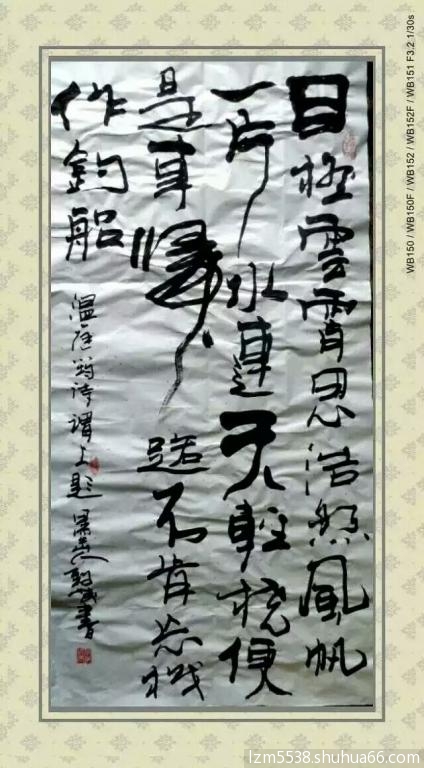 目極雲霄思浩然風帆
一片水連天輕橈便
是東歸路不肯忘機
作釣船
温庭筠詩渭上題
書
WB150 / WB150F / WB152 / WB152F / WB151 F3.2 1/30s
lzm5538.shuhua66.com